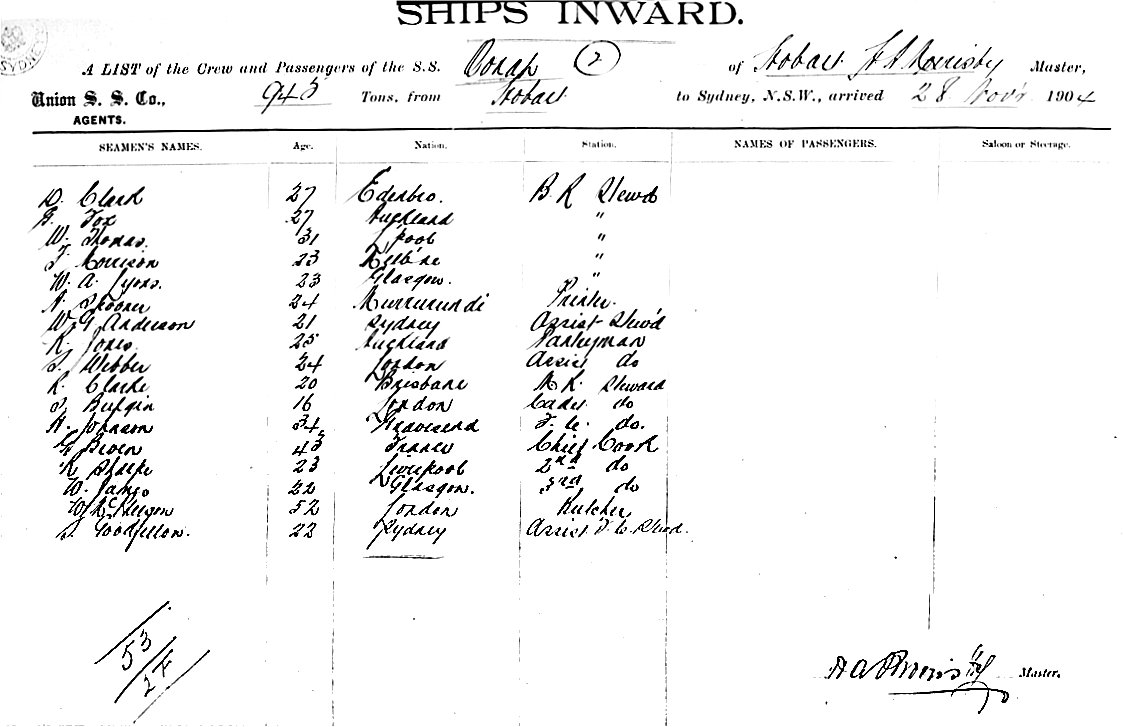 SHIPS INWARD.
SYDNEY
A LIST of the Crew and Passengers of the S.S. (2) of Hobart Master,
Union S. S. Co., 943 Tons, from Hobart to Sydney, N.S.W., arrived 28 Nov'r 1904
AGENTS.
SEAMEN'S NAMES. Age. Nation. Station. NAMES OF PASSENGERS. Saloon or Steerage.
D. Clark 27 Edenbro. B R Stewd
Fox 27 Auckland "
W. Thomas. 31 L'pool "
Morrison 23 Melb'ne "
W. A. Lyons. 23 Glasgow. "
Spooner 24 Murrurundi Printer.
W. G Anderson 21 Sydney Assist Stew'd
R. Jones. 25 Auckland Pantryman
Webber 24 London Assist do
R. Clarke 20 Brisbane Steward
16 London Cadet do
Johnson 34 Gravesend F. C. do.
43 France Chief Cook
R Sharpe 23 Liverpool 2nd do
W. James 22 Glasgow. 3rd do
W. 52 London Butcher
Goodfellow. 22 Sydney Assist F. C. Stewd.
53/24
Master.